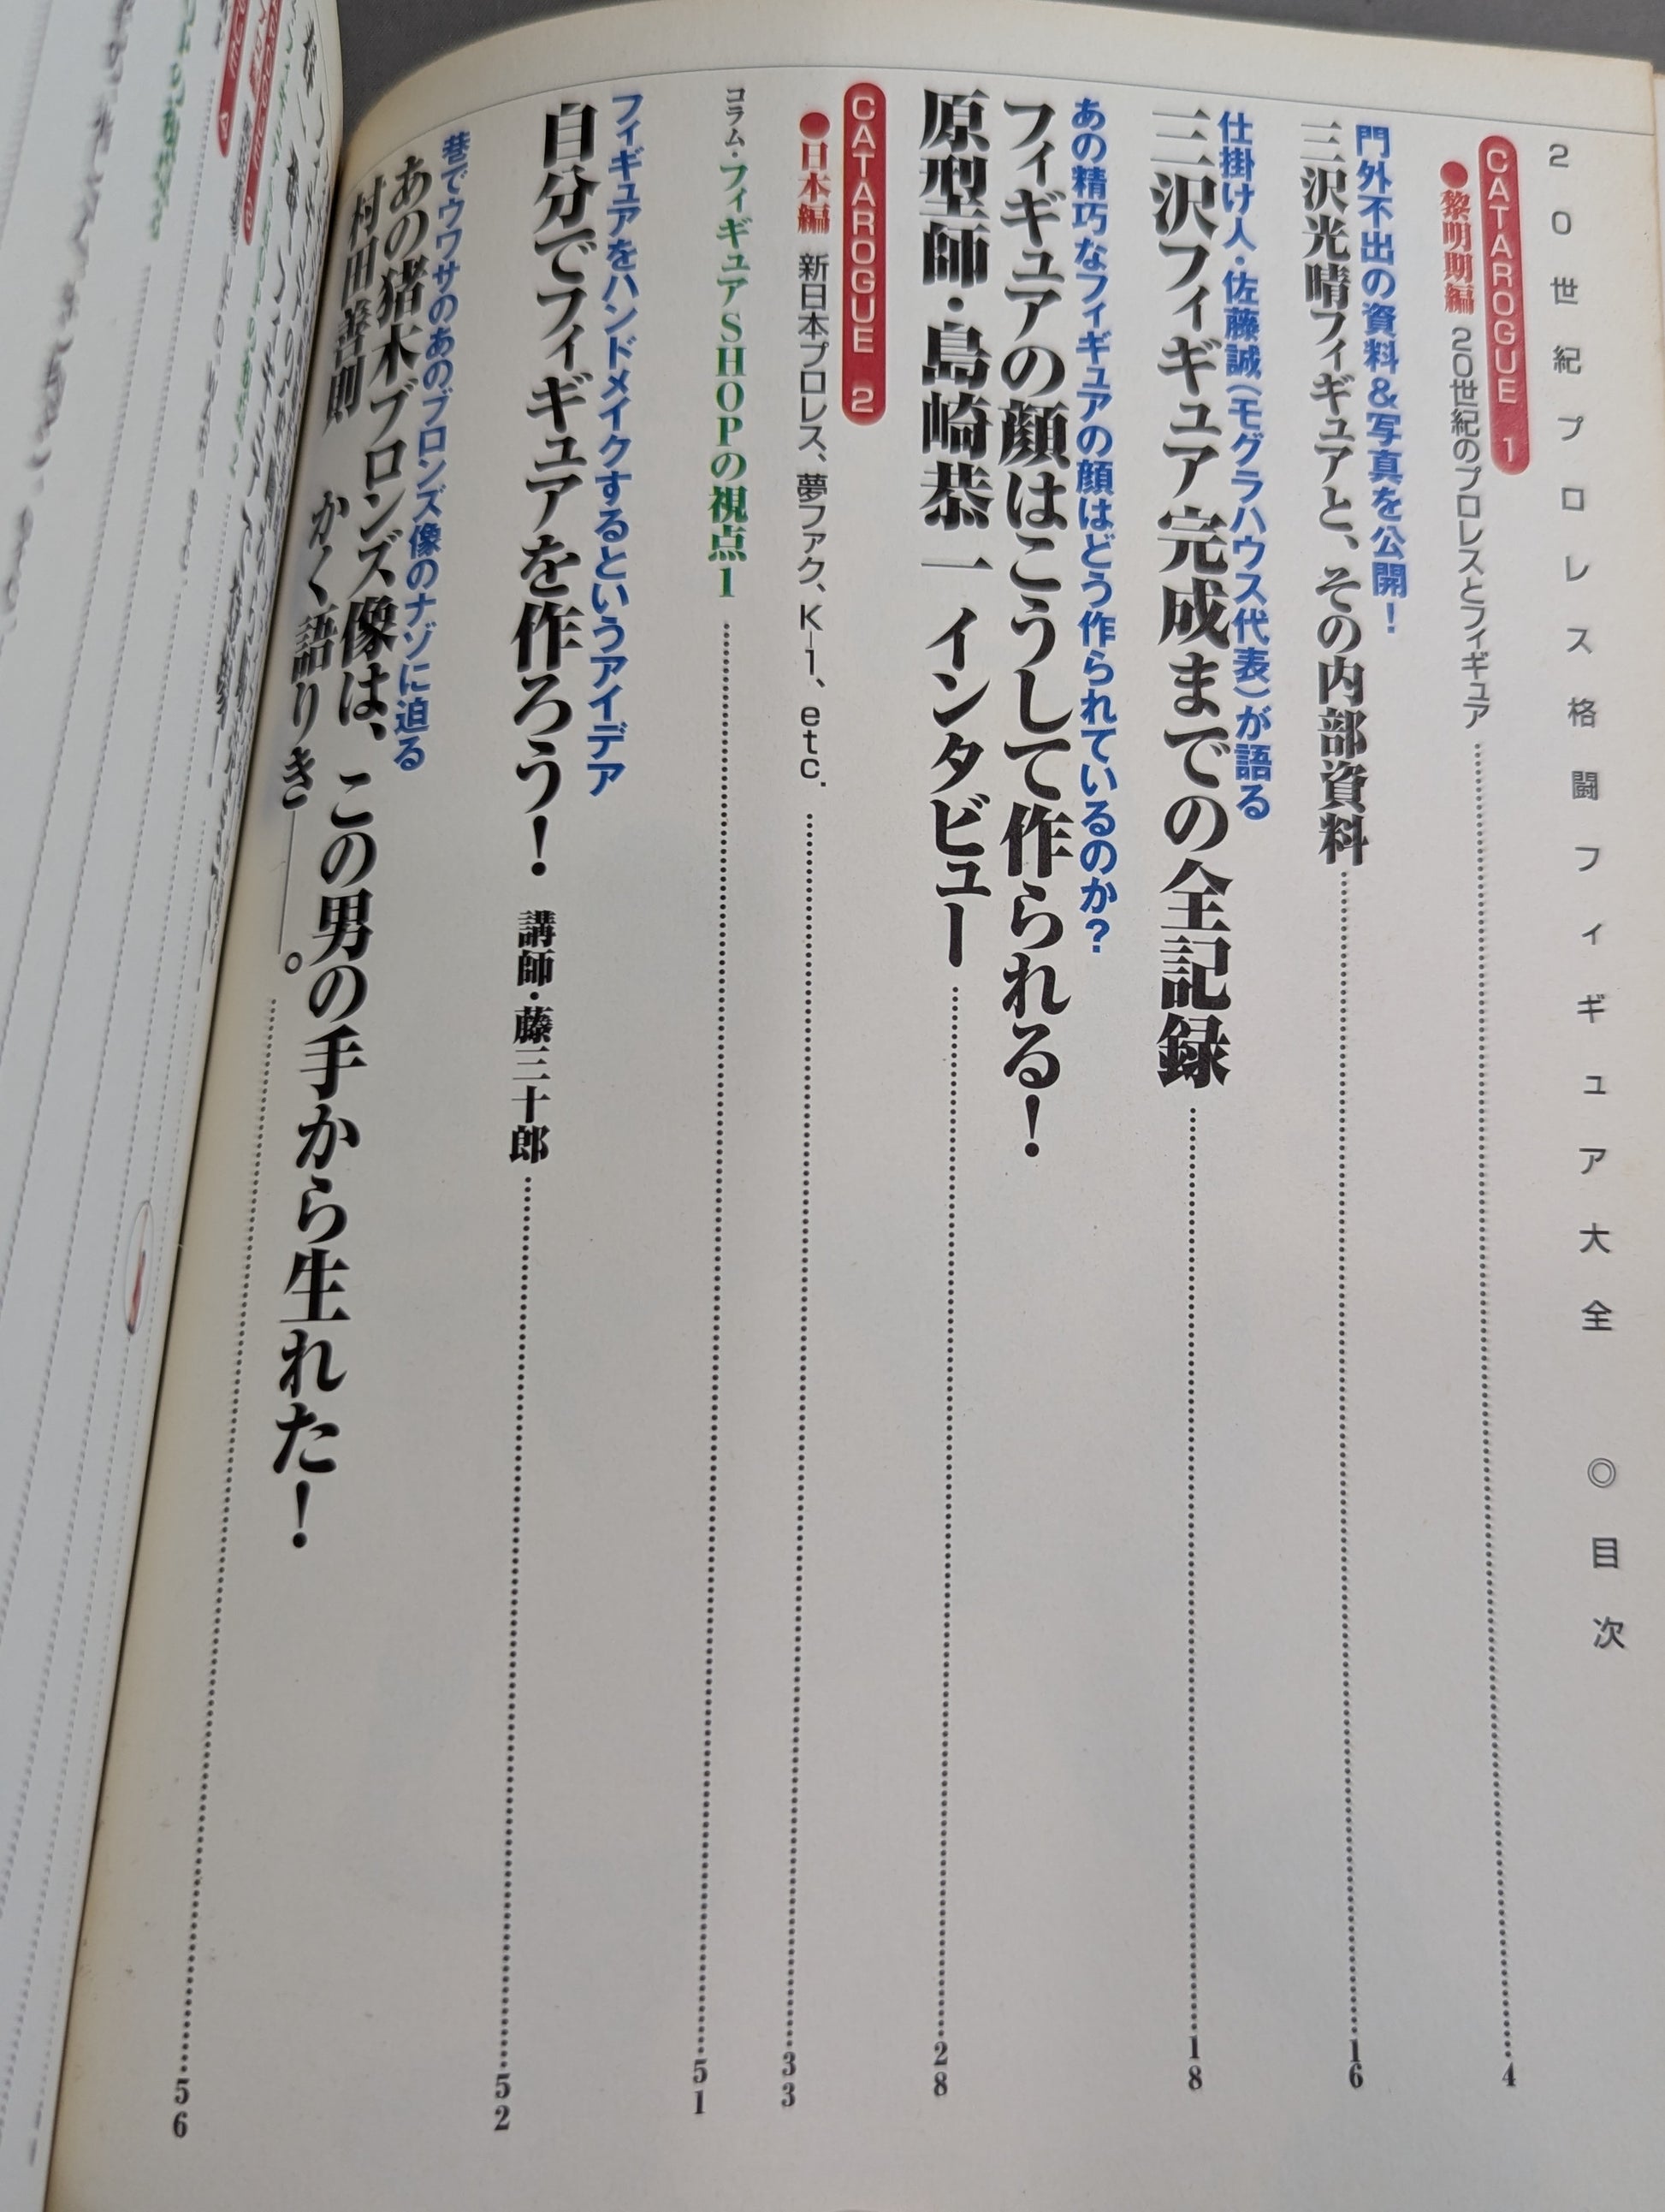 20世紀プロレス格闘フィギュア大全　◎目次
CATAROGUE 1
●黎明期編　20世紀のプロレスとフィギュア……4
門外不出の資料&写真を公開！
三沢光晴フィギュアと、その内部資料……16
仕掛け人・佐藤誠（モグラハウス代表）が語る
三沢フィギュア完成までの全記録……18
あの精巧なフィギュアの顔はどう作られているのか？
フィギュアの顔はこうして作られる！
原型師・島崎恭一　インタビュー……28
CATAROGUE 2
●日本編　新日本プロレス、夢ファク、K-1、etc.……33
コラム・フィギュアSHOPの視点1……51
フィギュアをハンドメイクするというアイデア
自分でフィギュアを作ろう！　講師・藤三十郎……52
巷でウワサのあのブロンズ像のナゾに迫る
あの猪木ブロンズ像は、この男の手から生れた！
村田善則　かく語りき——。……56